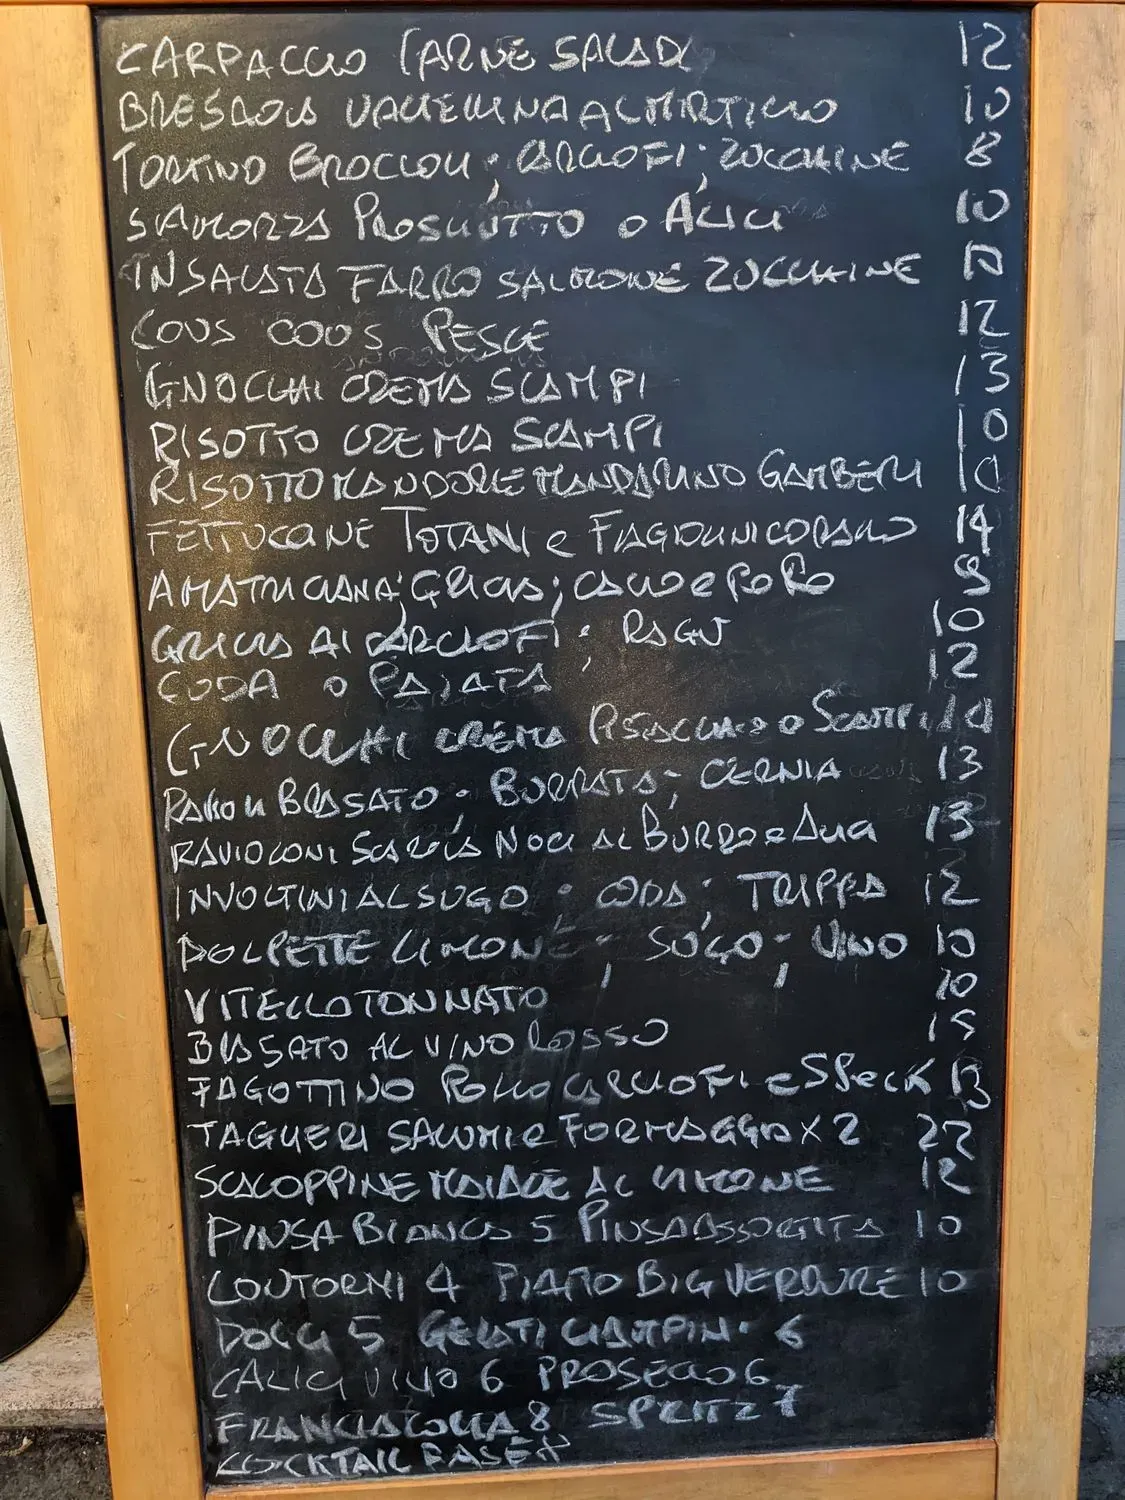 CARPACCIO CARNE SALADA 12
BRESAOLA VALTELLINA AL MIRTILLO 10
TORTINO BROCCOLI; CARCIOFI; ZUCCHINE 8
SCAMORZA PROSCIUTTO o ALICI 10
INSALATA FARRO SALMONE ZUCCHINE
COUS COUS PESCE 12
GNOCCHI CREMA SCAMPI 13
RISOTTO CREMA SCAMPI 10
RISOTTO MANDORLE MANDARINO GAMBERI 10
FETTUCCINE TOTANI e FAGIOLINI CORALLO 14
AMATRICIANA; GRICIA; CACIO e PEPE 9
GRICIA AI CARCIOFI; RAGU 10
CODA o PAJATA 12
GNOCCHI CREMA PISTACCHIO o SCAMPI
RAVIOLI BRASATO; BURRATA; CERNIA 13
RAVIOLONI SCAROLA NOCI AL BURRO e ALICI 13
INVOLTINI AL SUGO; CODA; TRIPPA 12
POLPETTE LIMONE; SUGO; VINO 10
VITELLO TONNATO 10
BRASATO AL VINO ROSSO 15
FAGOTTINO POLLO CARCIOFI e SPECK 13
TAGLIERI SALUMI e FORMAGGIO X 2 22
SCALOPPINE MAIALE AL LIMONE 12
PINSA BIANCA 5 PINSA ASSORTITA 10
CONTORNI 4 PIATTO BIG VERDURE 10
DOLCI 5 GELATI CIAMPINI 6
CALICI VINO 6 PROSECCO 6
FRANCIACORTA 8 SPRITZ 7
COCKTAIL BASE